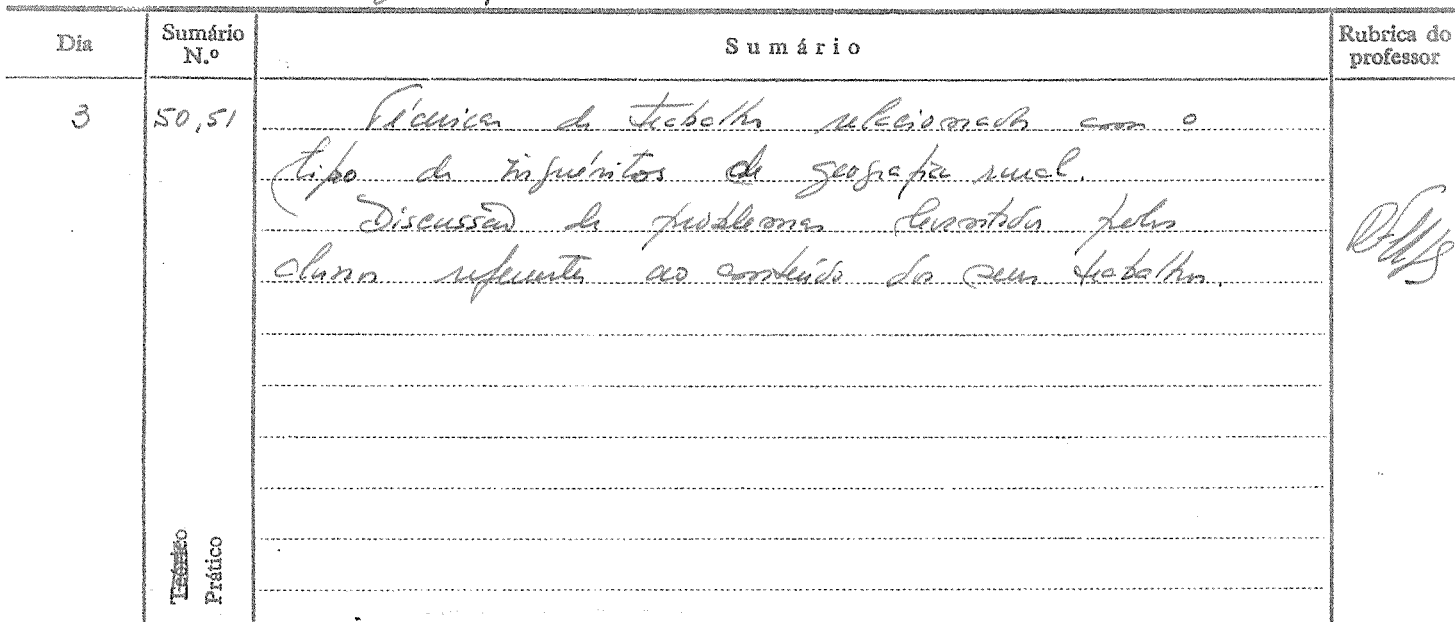 Dia
Sumário N.º
Sumário
Rubrica do professor
3
50,51
Técnicas de trabalho relacionadas com o
tipo de inquéritos de geografia rural.
Discussão de problemas levantados pelos
alunos referentes ao conteúdo dos seus trabalhos.
Teórico
Prático